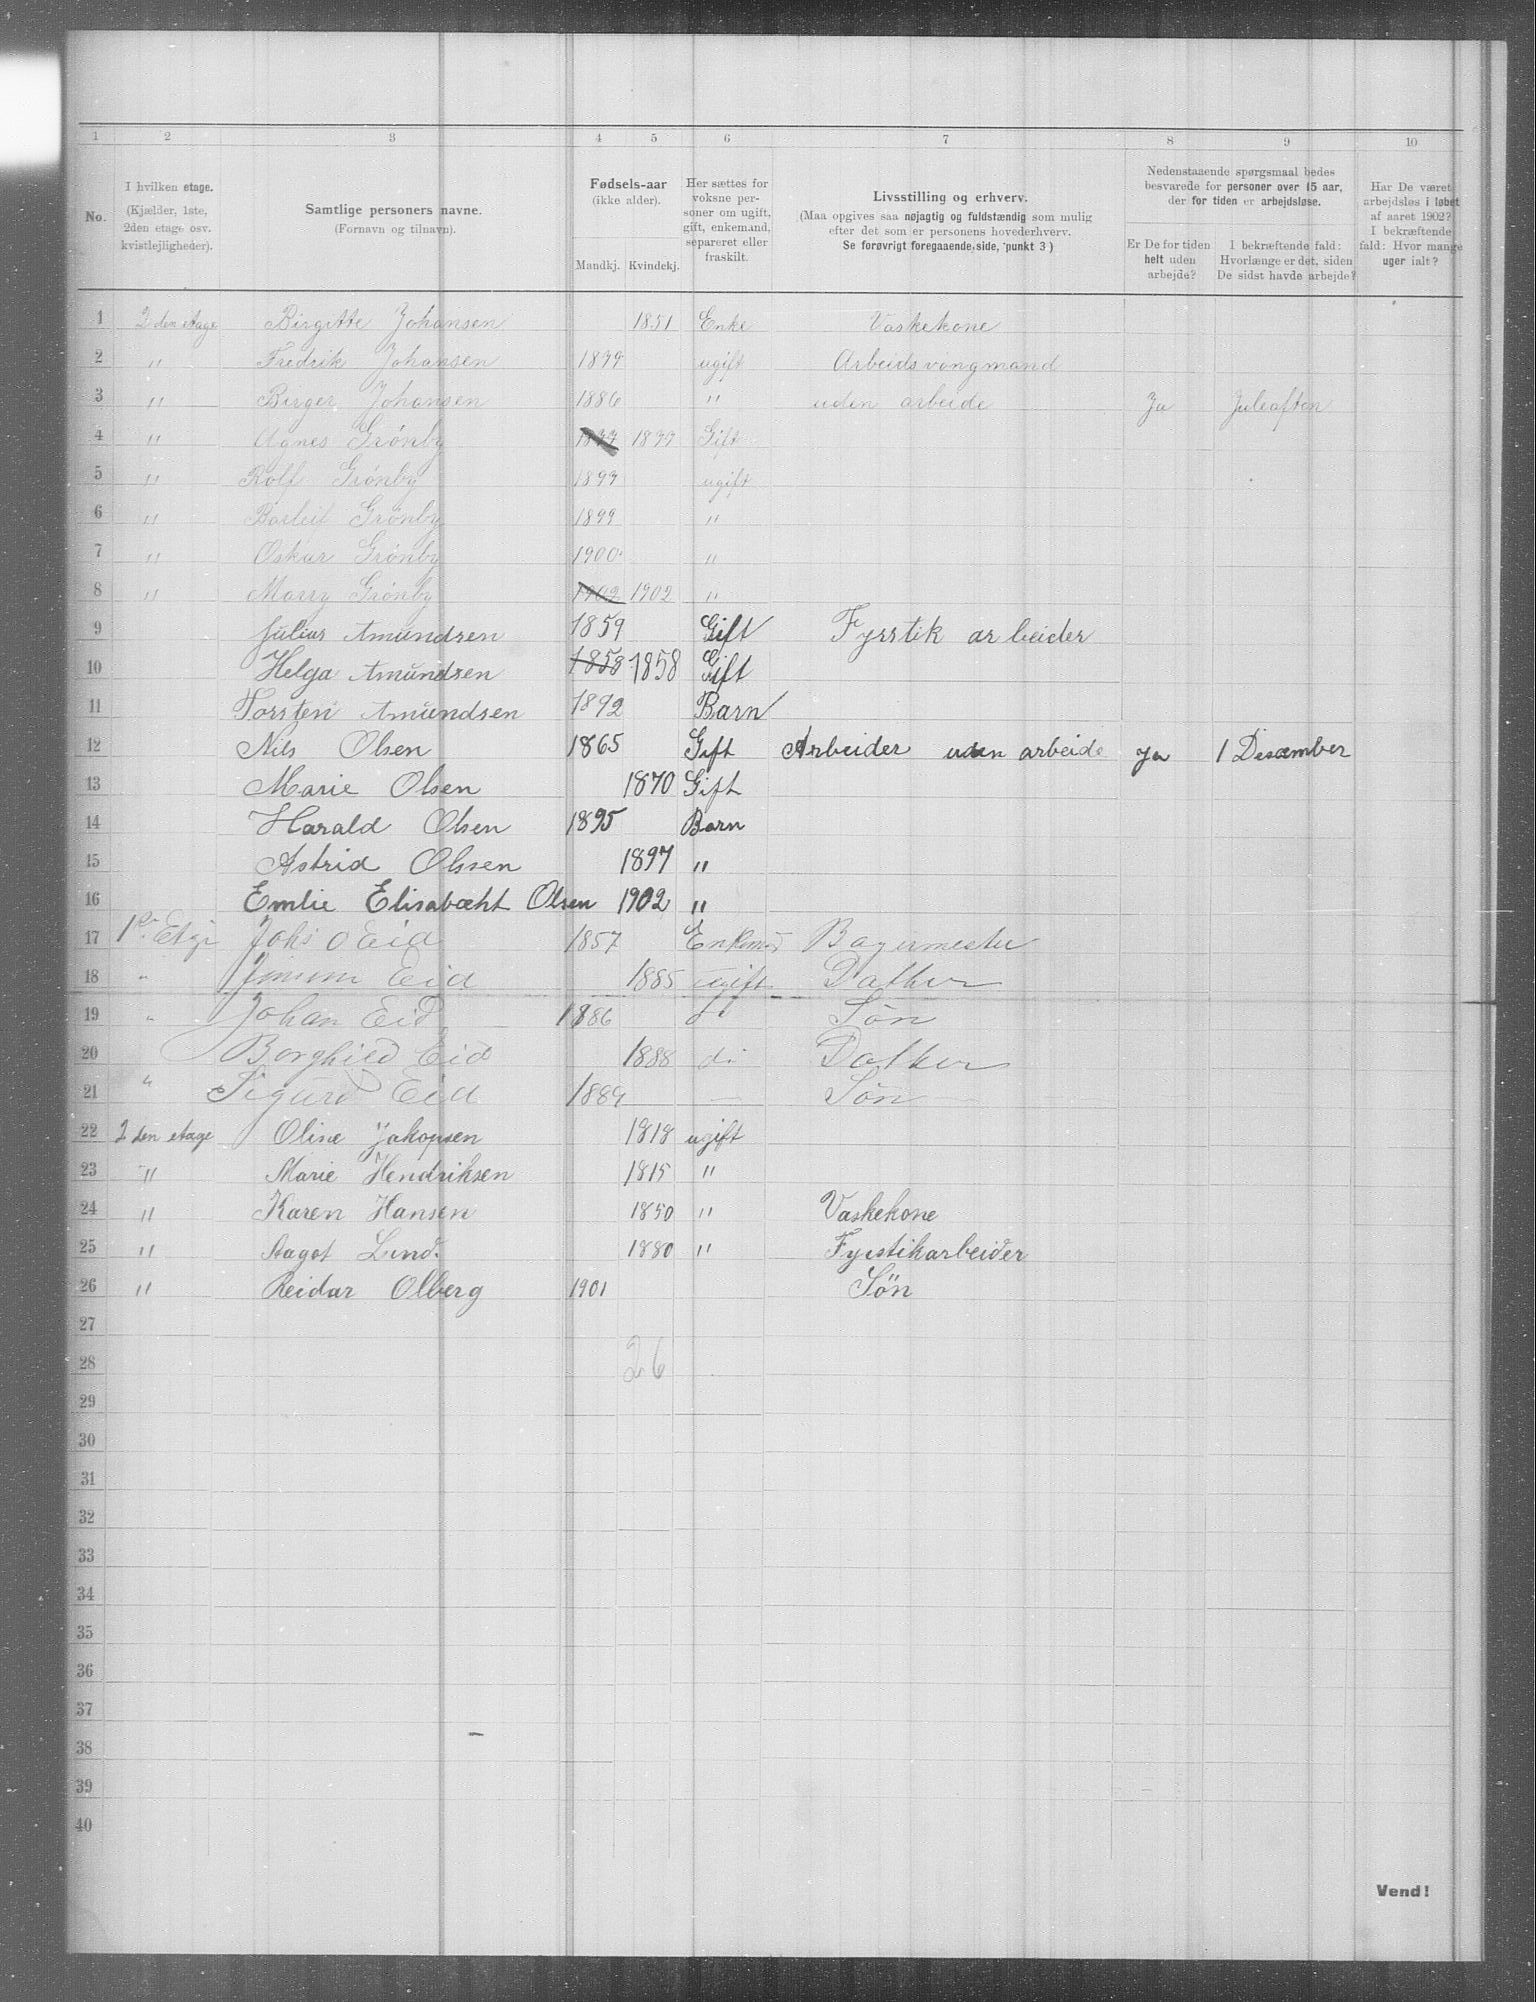 1 2 3 4 5 6 7 8 9 10
No.
I hvilken etage.
(Kjælder, 1ste,
2den etage osv.
kvistlejligheder).
Samtlige personers navne.
(Fornavn og tilnavn).
Fødsels-aar
(ikke alder).
Mandkj. Kvindekj.
Her sættes for
voksne per-
soner om ugift,
gift, enkemand,
separeret eller
fraskilt.
Livsstilling og erhverv.
(Maa opgives saa nøjagtig og fuldstændig som mulig
efter det som er personens hovederhverv.
Se forøvrigt foregaaende side, punkt 3)
Nedenstaaende spørgsmaal bedes
besvarede for personer over 15 aar,
der for tiden er arbejdsløse.
Er De for tiden
helt uden
arbejde?
I bekræftende fald:
Hvorlænge er det, siden
De sidst havde arbejde?
Har De været
arbejdsløs i løbet
af aaret 1902?
I bekræftende
fald: Hvor mange
uger ialt?
1 2 den etage Birgitte Johansen 1851 Enke Vaskekone
2 " Fredrik Johansen ugift
3 " Birger Johansen 1886 " uden arbeide Ja Juleaften
4 " Agnes Grönby Gift
5 " Rolf Grönby ugift
6 " Grönby 1899 "
7 " Oskar Grönby 1900 "
8 " Marry Grönby 1902 1902 "
9 Julius Amundsen 1859 Gift Fyrstik arbeider
10 Helga Amundsen 1858 1858 Gift
11 Torsten Amundsen 1892 Barn
12 Nils Olsen 1865 Gift Arbeider uden arbeide Ja 1 Desember
13 Marie Olsen 1870 Gift
14 Harald Olsen 1895 Barn
15 Astrid Olssen 1897 "
16 Emlie Elisabæht Olsen 1902 "
17 Eid 1857 Bagermester
18 " Eid 1885 ugift Datter
19 " Johan Eid 1886 Søn
20 Borghild Eid 1888 do Datter
21 " Sigurd Eid 1889 — Søn
22 2 den etage Oline Jakopsen 1818 ugift
23 " Marie Hendriksen 1815 "
24 " Karen Hansen 1850 " Vaskekone
25 " Aagot Lind. 1880 " Fyrstikarbeider
26 " Reidar Olberg 1901 Sön
27
28 26
29
30
31
32
33
34
35
36
37
38
39
40
Vend!